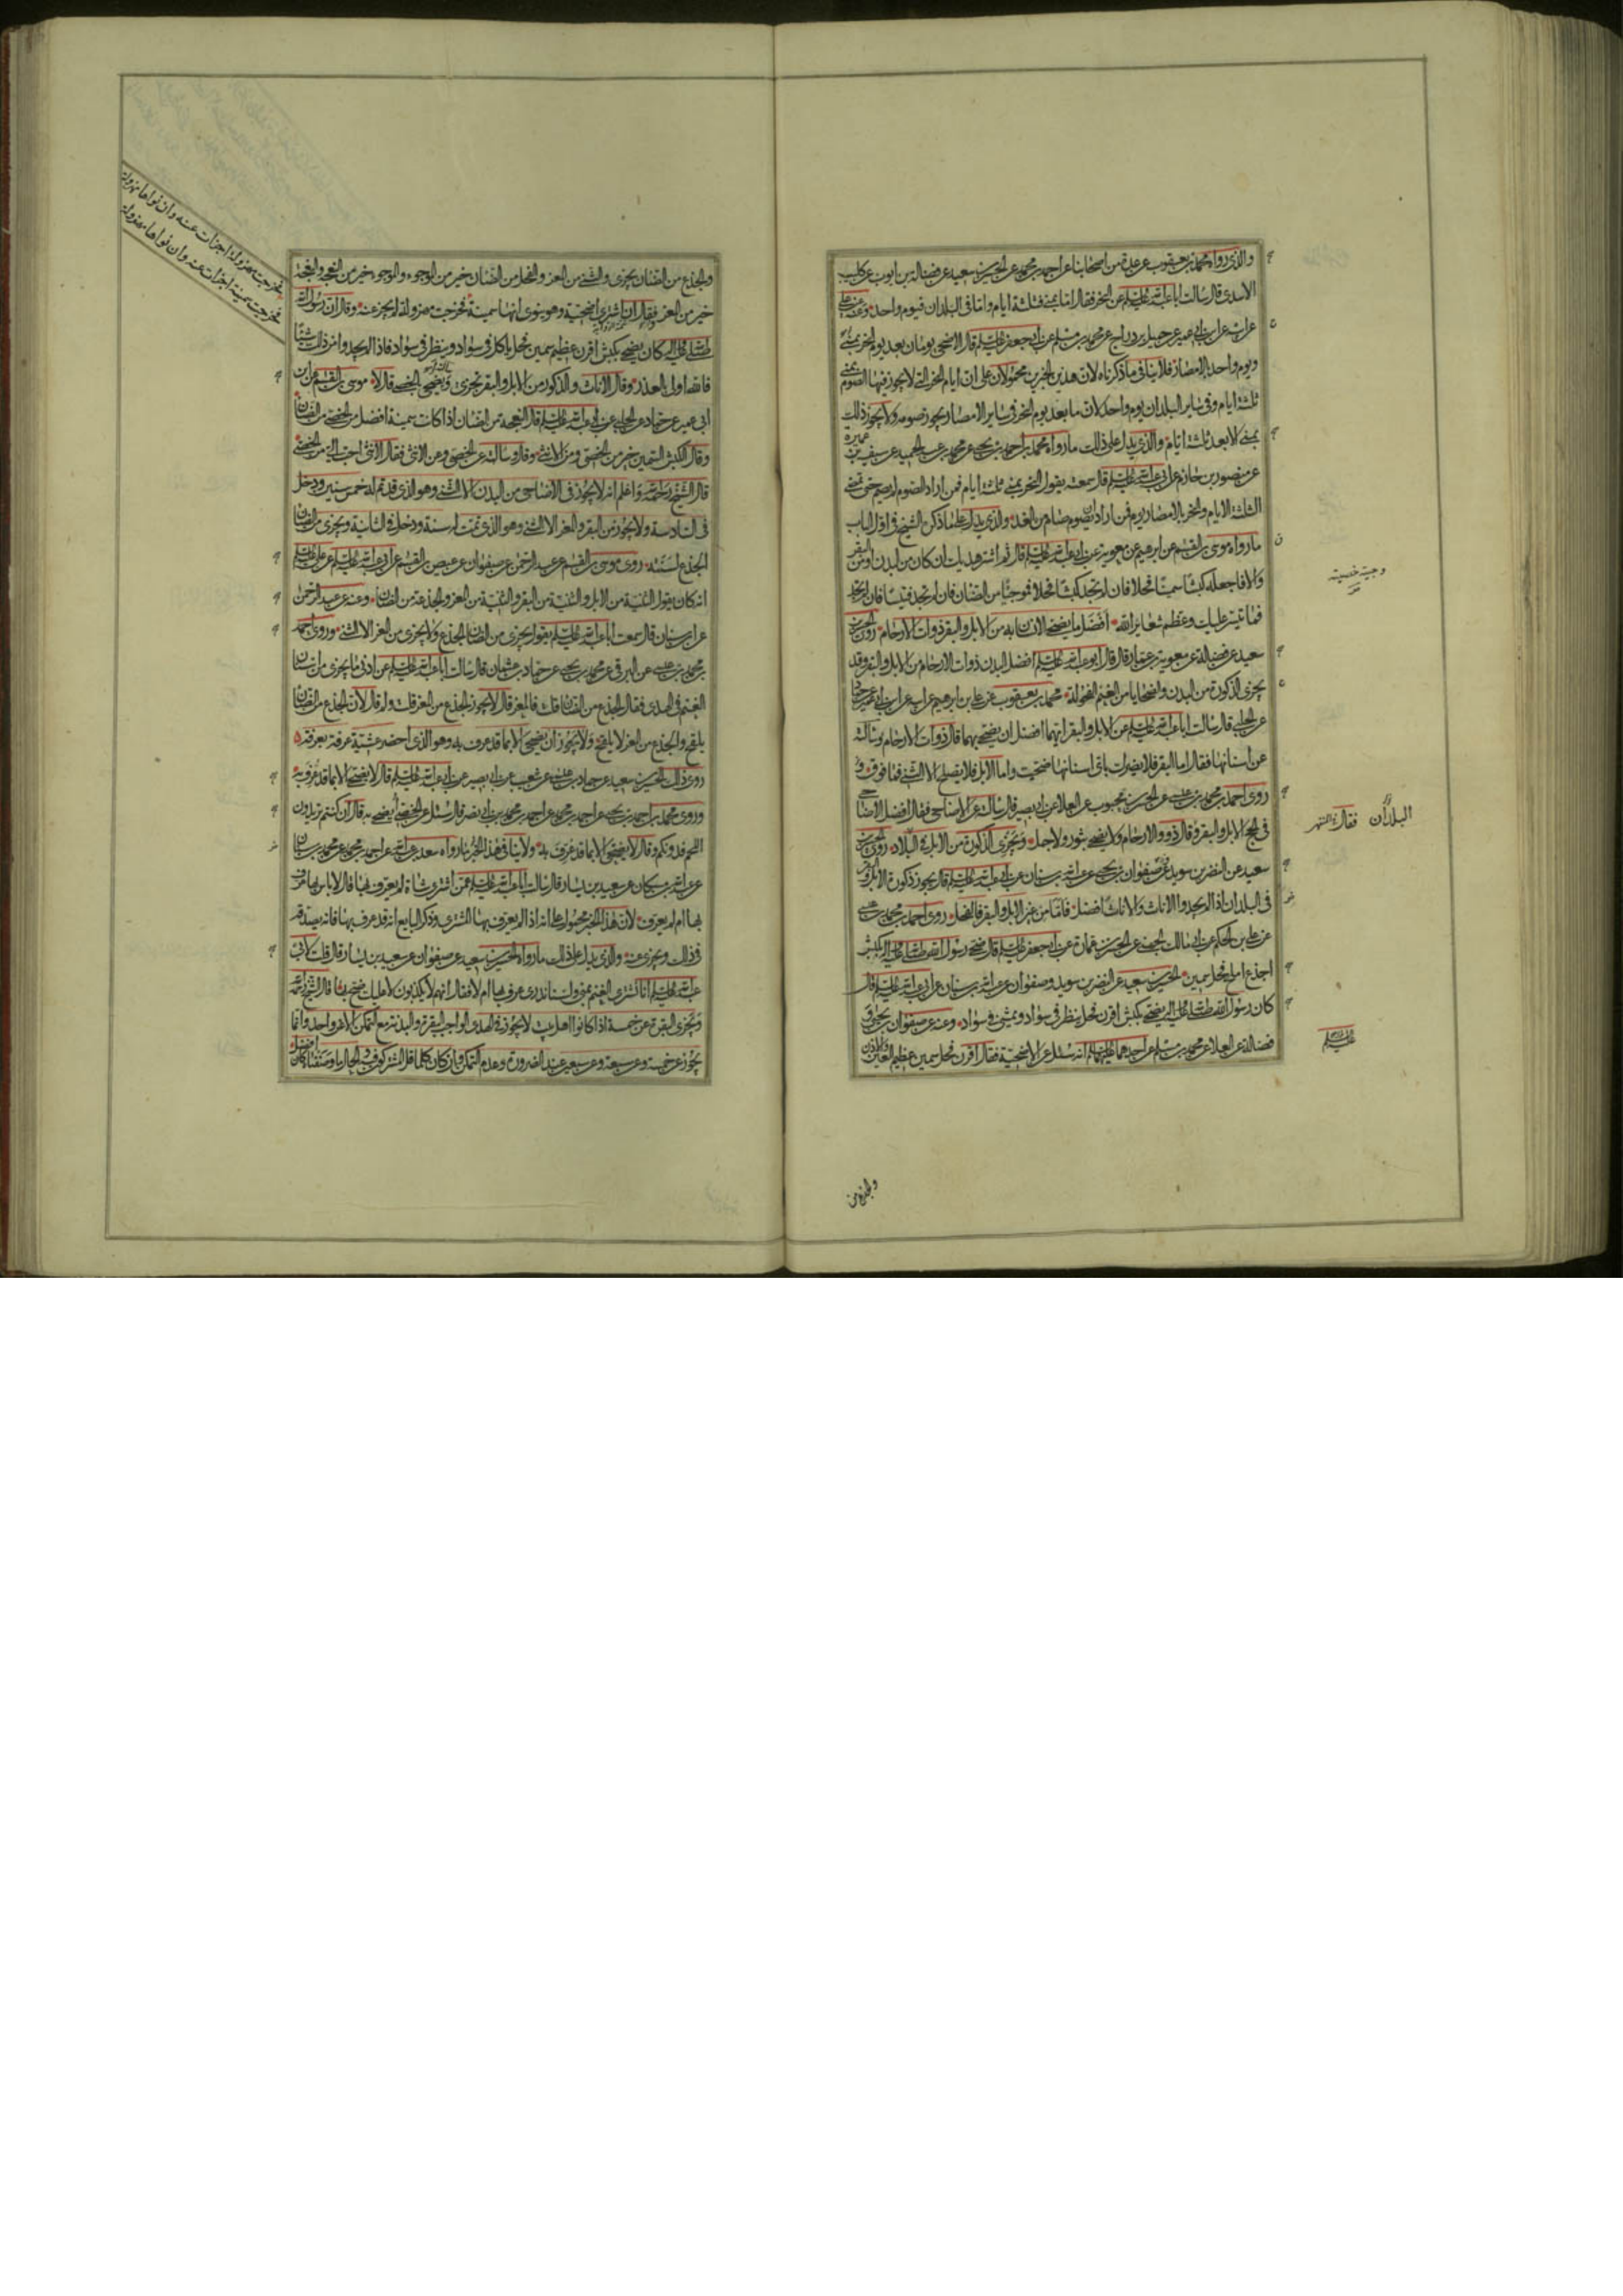 والذي رواه محمد بن يعقوب عن عدة من اصحابنا عن احمد بن محمد عن الحسين بن سعيد عن فضالة بن ايوب عن كليب
الاسدي قال سالت ابا عبد الله عليه السلم عن النحر فقال اما بمنى فثلثة ايام واما في البلدان فيوم واحد وعنه عن علي
عن ابيه عن ابن ابي عمير عن جميل بن دراج عن محمد بن مسلم عن ابي جعفر عليه السلم قال الاضحى يومان بعد يوم النحر بمنى
ويوم واحد بالامصار فلا ينافي ما ذكرناه لان هذين الخبرين محمولان على ان ايام النحر التي لا يجوز فيها الصوم بمنى
ثلثة ايام وفي ساير البلدان يوم واحد لان ما بعد يوم النحر في ساير الامصار يجوز صومه ولا يجوز ذلك
بمنى الا بعد ثلثة ايام والذي يدل على ذلك ما رواه محمد بن احمد بن يحيى عن محمد بن عبد الحميد عن سيف بن عميرة
عن منصور بن حازم عن ابي عبد الله عليه السلم قال سمعته يقول النحر بمنى ثلثة ايام فمن اراد الصوم لم يصم حتى تمضي
الثلثة الايام والنحر بالامصار يوم فمن اراد ان يصوم صام من الغد والذي يدل على ما ذكره الشيخ في اول الباب
ما رواه موسى بن القسم عن ابرهيم عن معوية عن ابي عبد الله عليه السلم قال ثم اشتر هديك ان كان من البدن او من البقر
والا فاجعله كبشا سمينا فحلا فان لم تجد كبشا فحلا فموجئا من الضان فان لم تجد فتيسا فان لم تجد
فما تيسر عليك وعظم شعاير الله افضل ما يضحى الانسان به من الابل والبقر ذوات الارحام روى الحسين بن
سعيد عن فضالة عن معوية بن عمار قال قال ابو عبد الله عليه السلم افضل البدن ذوات الارحام من الابل والبقر وقد
يجزى الذكورة من البدن والضحايا من الغنم الفحولة محمد بن يعقوب عن علي بن ابرهيم عن ابيه عن ابن ابي عمير عن حماد
عن الحلبي قال سالت ابا عبد الله عليه السلم عن الابل والبقر ايهما افضل ان يضحى بهما قال ذوات الارحام وسالته
عن اسنانها فقال اما البقر فلا يضرك باي اسنانها ضحيت واما الابل فلا يصلح الا الثني فما فوق و
روى احمد بن محمد بن عيسى عن الحسن بن محبوب عن العلا عن ابي بصير قال سالته عن الاضاحي فقال افضل الاضاحي
في الحج الابل والبقر وقال ذوو الارحام ولا يضحى بثور ولا جمل وتجزى الذكورة من الابل في البلاد روى الحسين بن
سعيد عن النضر بن سويد عن صفوان بن يحيى عن عبد الله بن سنان عن ابي عبد الله عليه السلم قال يجوز ذكورة الابل والبقر
في البلدان اذا لم يجدوا الاناث والاناث افضل فاما من غير الابل والبقر فالفحل روى احمد بن محمد بن عيسى
عن علي بن الحكم عن ابي مالك الجهني عن الحسن بن عمارة عن ابي جعفر عليه السلم قال ضحى رسول الله صلى الله عليه واله بكبش
اجذع املح فحل سمين الحسين بن سعيد عن النضر بن سويد وصفوان عن عبد الله بن سنان عن ابي عبد الله عليه السلم قال
كان رسول الله صلى الله عليه واله يضحى بكبش اقرن فحل ينظر في سواد ويمشي في سواد وعنه عن صفوان بن يحيى و
فضالة عن العلا عن محمد بن مسلم عن احدهما عليهما السلم انه سئل عن الاضحية فقال اقرن فحل سمين عظيم العين والاذن
وجيئة خصيته
البلدان
فقال
عليه السلم
والجذع من
والجذع من الضان يجزى والثني من المعز والفحل من الضان خير من الموجوء والموجوء خير من النعجة والنعجة
خير من المعز فقال ان اشترى اضحية وهو ينوى انها سمينة فخرجت مهزولة لم يجز عنه وقال ان رسول الله
صلى الله عليه واله كان يضحى بكبش اقرن عظيم سمين فحل ياكل في سواد وينظر في سواد فاذا لم يجدوا من ذلك شيئا
فالله اولى بالعذر وقال الاناث والذكور من الابل والبقر تجزى وسالته ايضحى بالخصى قال لا موسى بن القسم عن ابن
ابي عمير عن حماد عن الحلبي عن ابي عبد الله عليه السلم قال النعجة من الضان اذا كانت سمينة افضل من الخصى من الضان
وقال الكبش السمين خير من الخصى ومن الانثى وقال وسالته عن الخصى وعن الانثى فقال الانثى احب الي من الخصى
قال الشيخ رحمه الله واعلم انه لا يجوز في الاضاحى من البدن الا الثني وهو الذي قد تم له خمس سنين ودخل
في السادسة ولا يجوز من البقر والمعز الا الثني وهو الذي تمت له سنة ودخل في الثانية ويجزى من الضان
الجذع لسنته روى موسى بن القسم عن عبد الرحمن عن صفوان عن عيص بن القسم عن ابي عبد الله عليه السلم عن علي عليه السلم
انه كان يقول الثنية من الابل والثنية من البقر والثنية من المعز والجذعة من الضان وعنه عن عبد الرحمن
عن ابن سنان قال سمعت ابا عبد الله عليه السلم يقول يجزى من الضان الجذع ولا يجزى من المعز الا الثني وروى احمد
بن محمد بن عيسى عن البرقي عن محمد بن يحيى عن حماد بن عثمان قال سالت ابا عبد الله عليه السلم عن ادنى ما يجزى من اسنان
الغنم في الهدى فقال الجذع من الضان قلت فالمعز قال لا يجوز الجذع من المعز قلت ولم قال لان الجذع من الضان
يلقح والجذع من المعز لا يلقح ولا يجوز ان يضحى الا بما قد عرف به وهو الذي احضر عشية عرفة بعرفة
روى ذلك الحسين بن سعيد عن حماد بن عيسى عن شعيب عن ابي بصير عن ابي عبد الله عليه السلم قال لا يضحى الا بما قد عرف به
وروى محمد بن احمد بن يحيى عن احمد بن محمد عن احمد بن محمد بن ابي نصر قال سئل عن الخصى ايضحى به قال ان كنتم تريدون
اللحم فدونكم وقال لا يضحى الا بما قد عرف به ولا ينافي هذا الخبر ما رواه سعد بن عبد الله عن احمد بن محمد عن محمد بن سنان
عن عبد الله بن مسكان عن سعيد بن يسار قال سالت ابا عبد الله عليه السلم عمن اشترى شاة لم يعرف بها قال لا باس بها عرف
بها ام لم يعرف لان هذا الخبر محمول على انه اذا لم يعرف بها المشترى وذكر البايع انه قد عرف بها فانه يصدقه
في ذلك ويجزى عنه والذي يدل على ذلك ما رواه الحسين بن سعيد عن صفوان عن سعيد بن يسار قال قلت لابي
عبد الله عليه السلم انا نشترى الغنم بمنى ولسنا ندرى عرف بها ام لا فقال انهم لا يكذبون لا عليك ضح بها قال الشيخ رحمه الله
وتجزى البقرة عن خمسة اذا كانوا اهل بيت لا يجوز في الهدى الواجب البقرة والبدنة مع التمكن الا عن واحد وانما
يجوز عن خمسة وعن سبعة وعن سبعين عند الضرورة وعدم التمكن وان كان كلما اقل المشتركون في الحال ما وصفناه كان افضل
فخرجت مهزولة اجزات عنه وان نواها مهزولة
فخرجت سمينة اجزات عنه وان نواها مهزولة